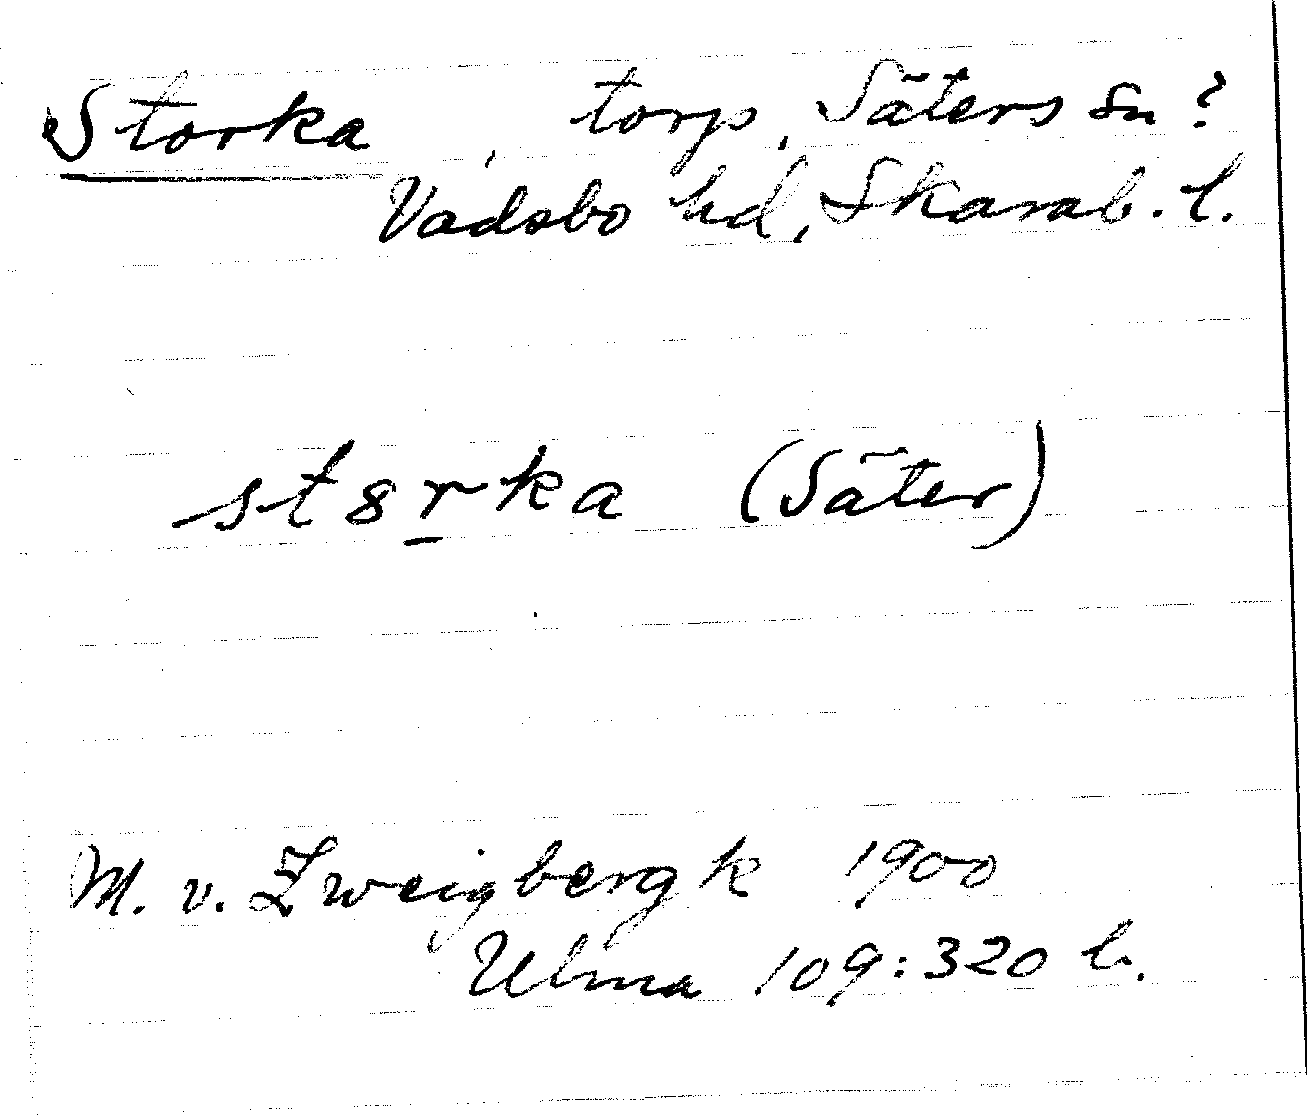 Storka, torp, Säters sn?
Vadsbo hd, Skarab. l.
st8rka (Säter)
M. v. Zweigbergk 1900
Ulma 109:320 b.